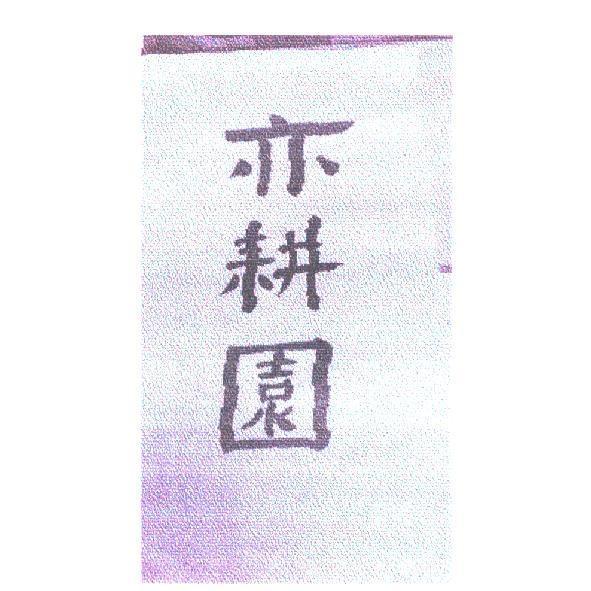 亦耕園